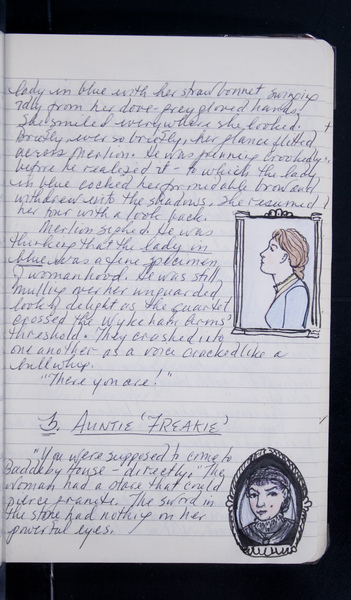 lady in blue with her straw bonnet swinging
idly from her dove-grey gloved hands,
she smiled everywhere she looked.
Briefly, ever so briefly, her glance flitted
across Merlion. He was grinning crookedly,
before he realized it - to which the lady
in blue cocked her formidable brow and
withdrew into the shadows. She resumed
her tour with a look back.
Merlion sighed. He was
thinking that the lady in
blue was a fine specimen
of womanhood. He was still
mulling over her unguarded
look of delight as the quartet
crossed the Wykeham Arms'
threshold. They crashed into
one another as a voice cracked like a
bullwhip.
"There you are!"
3. AUNTIE 'FREAKIE'
"You were supposed to come to
Baddeby House - directly." The
woman had a stare that could
pierce granite. The sword in
the stone had nothing on her
powerful eyes.